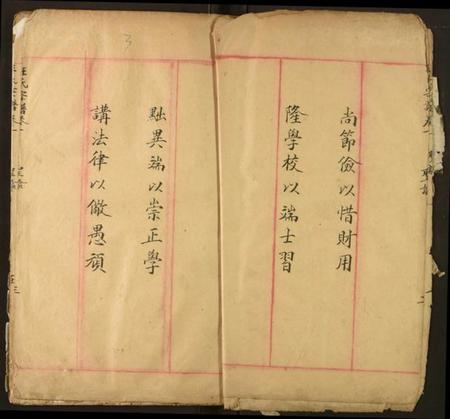 尚節儉以惜財用
隆學校以端士習
黜異端以崇正學
講法律以儆愚頑
汪氏宗譜卷一